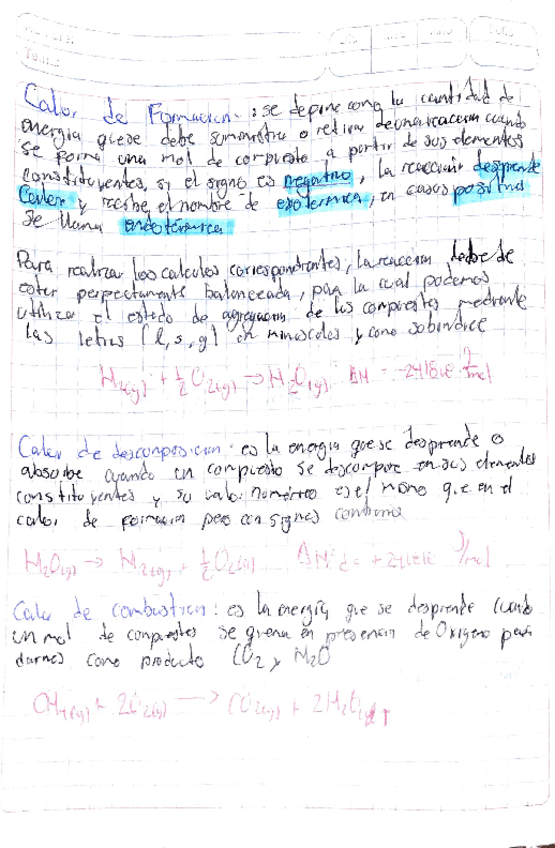 Calor de Formacion: se define como la cantidad de
energia que se debe suministra o retirar de una reaccion cuando
se forma una mol de compuesto a partir de sus elementos
constituyentes, si el signo es negativo, la reaccion desprende
Calor y recibe el nombre de exotermica, en casos positivos
se llama endotérmica
Para realizar los calculos correspondientes, la reaccion debe de
estar perfectamente balanceada, para la cual podemos
utilizar el estado de agregacion de los compuestos mediante
las letras (l, s, g) en minusculas y como subindice
H₂(g) + ½O₂(g) → H₂O(g) ΔH = -241818 J/mol
Calor de descomposicion: es la energia que se desprende o
absorbe cuando un compuesto se descompone en sus elementos
constituyentes y su valor numérico es el mismo que en el
calor de formacion pero con signos contrarios
H₂O(g) → H₂(g) + ½O₂(g) +241818 J/mol
Calor de combustion: es la energía que se desprende cuando
un mol de compuestos se quema en presencia de Oxigeno para
darnos como producto CO₂ y H₂O
CH₄(g) + 2O₂(g) → CO₂(g) + 2H₂O